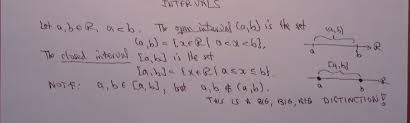 INTERVALS
Let a, b ∈ ℝ, a < b. The open interval (a, b) is the set
(a, b) = {x ∈ ℝ | a < x < b}.
(a, b)
a b ℝ
The closed interval [a, b] is the set
[a, b] = {x ∈ ℝ | a ≤ x ≤ b}.
[a, b]
a b ℝ
NOTE: a, b ∈ [a, b], but a, b ∉ (a, b).
THIS IS A BIG, BIG, BIG DISTINCTION!